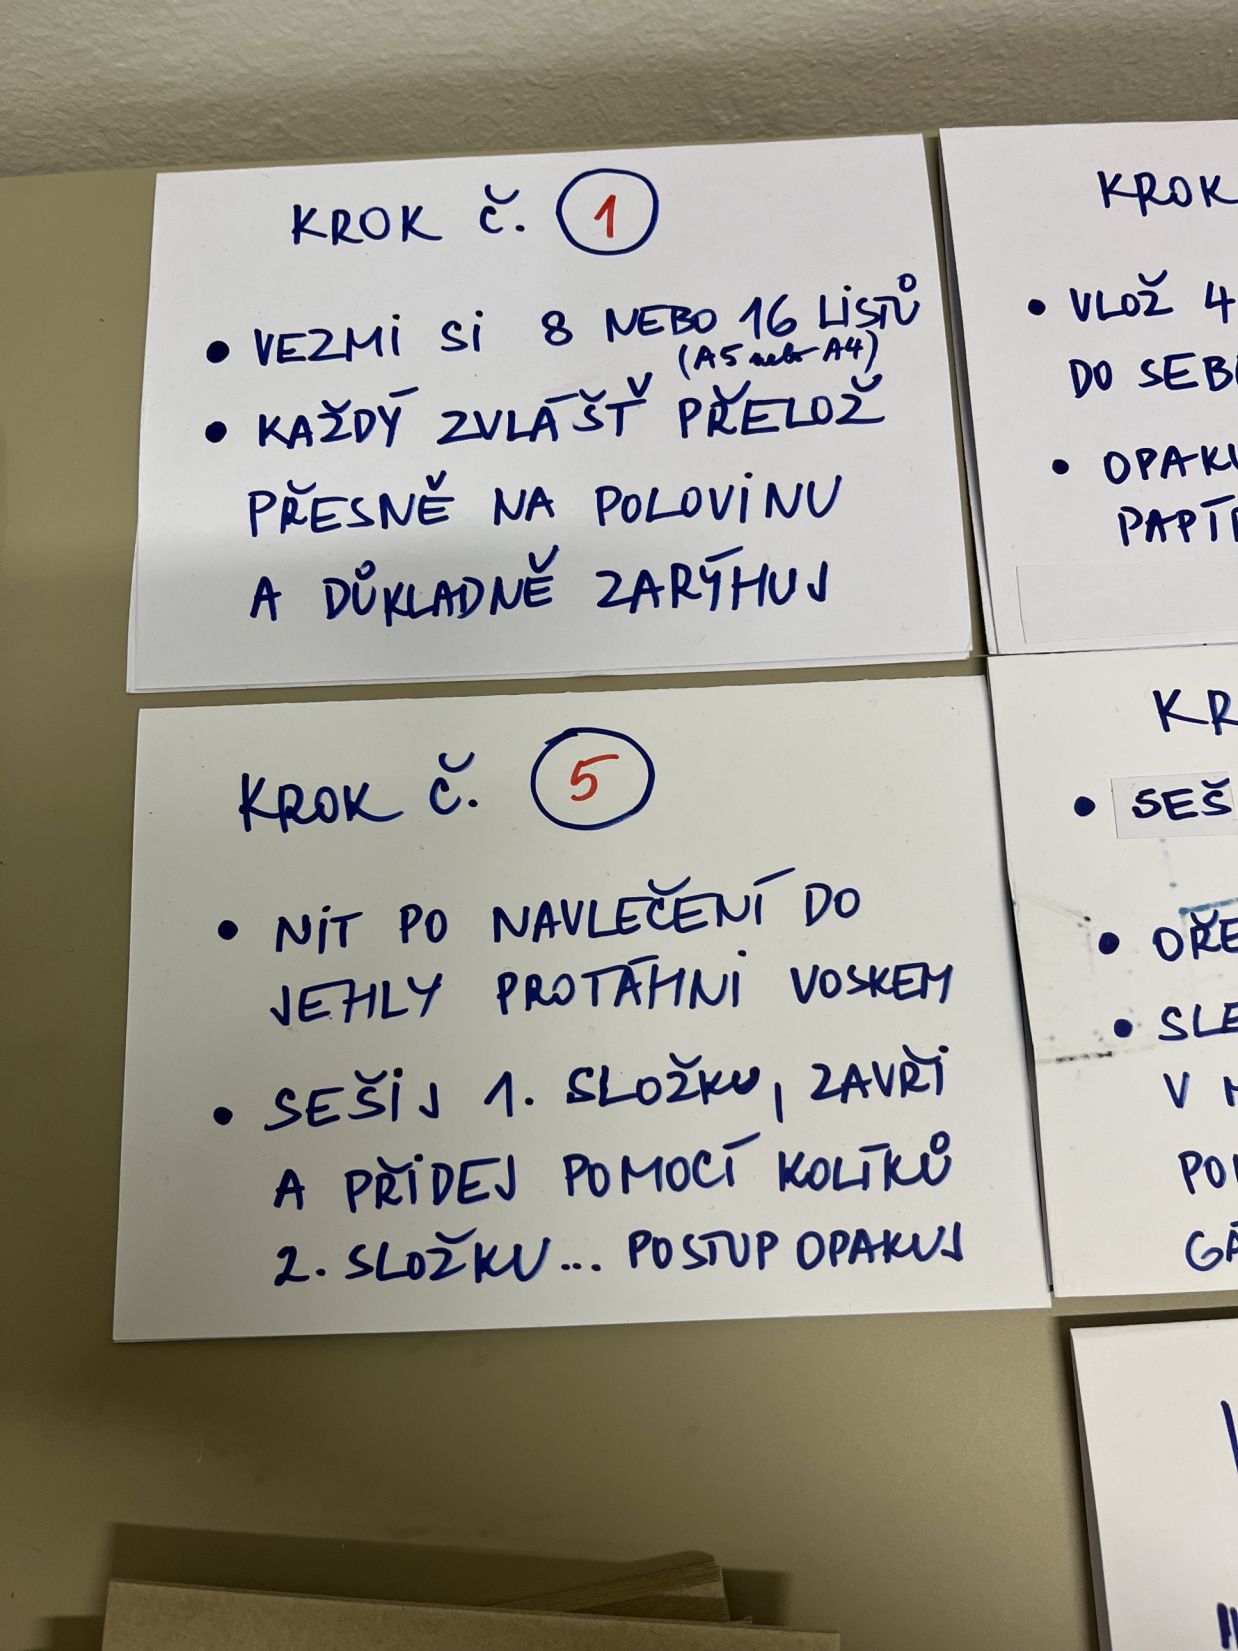 KROK Č. 1
• VEZMI SI 8 NEBO 16 LISTŮ
(A5 nebo A4)
• KAŽDÝ ZVLÁŠŤ PŘELOŽ
PŘESNĚ NA POLOVINU
A DŮKLADNĚ ZARÝHUJ
KROK
• VLOŽ 4
DO SEB
• OPAK
PAPÍ
KROK Č. 5
• NIT PO NAVLEČENÍ DO
JEHLY PROTÁHNI VOSKEM
• SEŠIJ 1. SLOŽKU, ZAVŘI
A PŘIDEJ POMOCÍ KOLÍKŮ
2. SLOŽKU... POSTUP OPAKUJ
KR
• SEŠ
• OŘE
• SLE
V
PO
GÁ